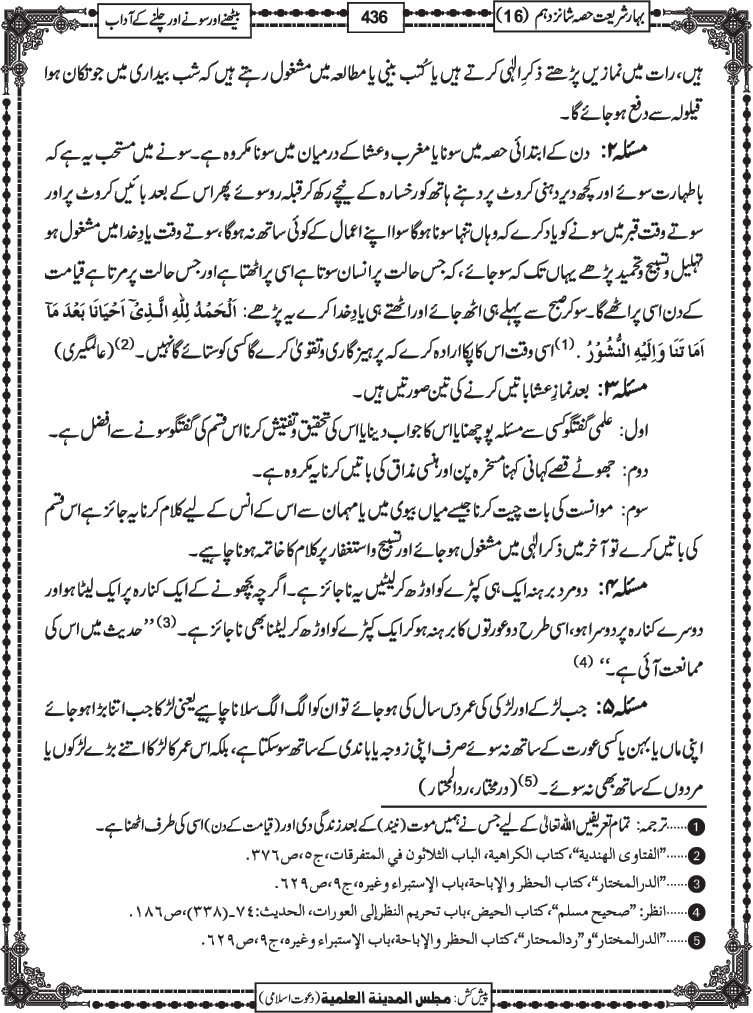 بہار شریعت حصہ شانزدہم (16)
436
بیٹھنے اور سونے اور چلنے کے آداب
ہیں، رات میں نمازیں پڑھتے ذکرِ الٰہی کرتے ہیں یا کُتب بینی یا مطالعہ میں مشغول رہتے ہیں کہ شب بیداری میں جو تکان ہوا
قیلولہ سے دفع ہو جائے گا۔
مسئلہ ۲: دن کے ابتدائی حصہ میں سونا یا مغرب و عشا کے درمیان میں سونا مکروہ ہے۔ سونے میں مستحب یہ ہے کہ
باطہارت سوئے اور کچھ دیر دہنی کروٹ پر دہنے ہاتھ کو رخسارہ کے نیچے رکھ کر قبلہ رو سوئے پھر اس کے بعد بائیں کروٹ پر اور
سوتے وقت قبر میں سونے کو یاد کرے کہ وہاں تنہا سونا ہوگا سوا اپنے اعمال کے کوئی ساتھ نہ ہوگا، سوتے وقت یادِ خدا میں مشغول ہو
تہلیل و تسبیح و تحمید پڑھے یہاں تک کہ سو جائے، کہ جس حالت پر انسان سوتا ہے اسی پر اٹھتا ہے اور جس حالت پر مرتا ہے قیامت
کے دن اسی پر اٹھے گا۔ سو کر صبح سے پہلے ہی اٹھ جائے اور اٹھتے ہی یادِ خدا کرے یہ پڑھے: اَلْحَمْدُ لِلّٰهِ الَّـذِیْۤ اَحْیَانَا بَعْدَ مَاۤ
اَمَاتَنَا وَاِلَیْهِ النُّشُوْرُ . (1) اسی وقت اس کا پکا ارادہ کرے کہ پرہیزگاری و تقویٰ کرے گا کسی کو ستائے گا نہیں۔ (2) (عالمگیری)
مسئلہ ۳: بعد نماز عشا باتیں کرنے کی تین صورتیں ہیں۔
اول: علمی گفتگو کسی سے مسئلہ پوچھنا یا اس کا جواب دینا یا اس کی تحقیق و تفتیش کرنا اس قسم کی گفتگو سونے سے افضل ہے۔
دوم: جھوٹے قصے کہانی کہنا مسخرہ پن اور ہنسی مذاق کی باتیں کرنا یہ مکروہ ہے۔
سوم: موانست کی بات چیت کرنا جیسے میاں بیوی میں یا مہمان سے اس کے انس کے لیے کلام کرنا یہ جائز ہے اس قسم
کی باتیں کرے تو آخر میں ذکرِ الٰہی میں مشغول ہو جائے اور تسبیح و استغفار پر کلام کا خاتمہ ہونا چاہیے۔
مسئلہ ۴: دو مرد برہنہ ایک ہی کپڑے کو اوڑھ کر لیٹیں یہ ناجائز ہے۔ اگرچہ بچھونے کے ایک کنارہ پر ایک لیٹا ہو اور
دوسرے کنارہ پر دوسرا ہو، اسی طرح دو عورتوں کا برہنہ ہو کر ایک کپڑے کو اوڑھ کر لیٹنا بھی ناجائز ہے۔ (3) ’’حدیث میں اس کی
ممانعت آئی ہے۔‘‘ (4)
مسئلہ ۵: جب لڑکے اور لڑکی کی عمر دس سال کی ہو جائے تو ان کو الگ الگ سلانا چاہیے یعنی لڑکا جب اتنا بڑا ہو جائے
اپنی ماں یا بہن یا کسی عورت کے ساتھ نہ سوئے صرف اپنی زوجہ یا باندی کے ساتھ سو سکتا ہے، بلکہ اس عمر کا لڑکا اتنے بڑے لڑکوں یا
مردوں کے ساتھ بھی نہ سوئے۔ (5) (درمختار، ردالمحتار)
1 ......ترجمہ: تمام تعریفیں اللہ تعالیٰ کے لیے جس نے ہمیں موت (نیند) کے بعد زندگی دی اور (قیامت کے دن) اسی کی طرف اٹھنا ہے۔
2 ......”الفتاوی الهندیة“، کتاب الکراهیة، الباب الثلاثون في المتفرقات، ج٥، ص٣٧٦.
3 ......”الدرالمختار“، کتاب الحظر والإباحة، باب الإستبراء وغیره، ج٩، ص٦٢٩.
4 ......انظر: ”صحیح مسلم“، کتاب الحیض، باب تحریم النظر إلی العورات، الحدیث: ٧٤ـ(٣٣٨)، ص١٨٦.
5 ......”الدرالمختار“ و ”ردالمحتار“، کتاب الحظر والإباحة، باب الإستبراء وغیره، ج٩، ص٦٢٩.
پیش کش: مجلس المدینة العلمیة (دعوت اسلامی)